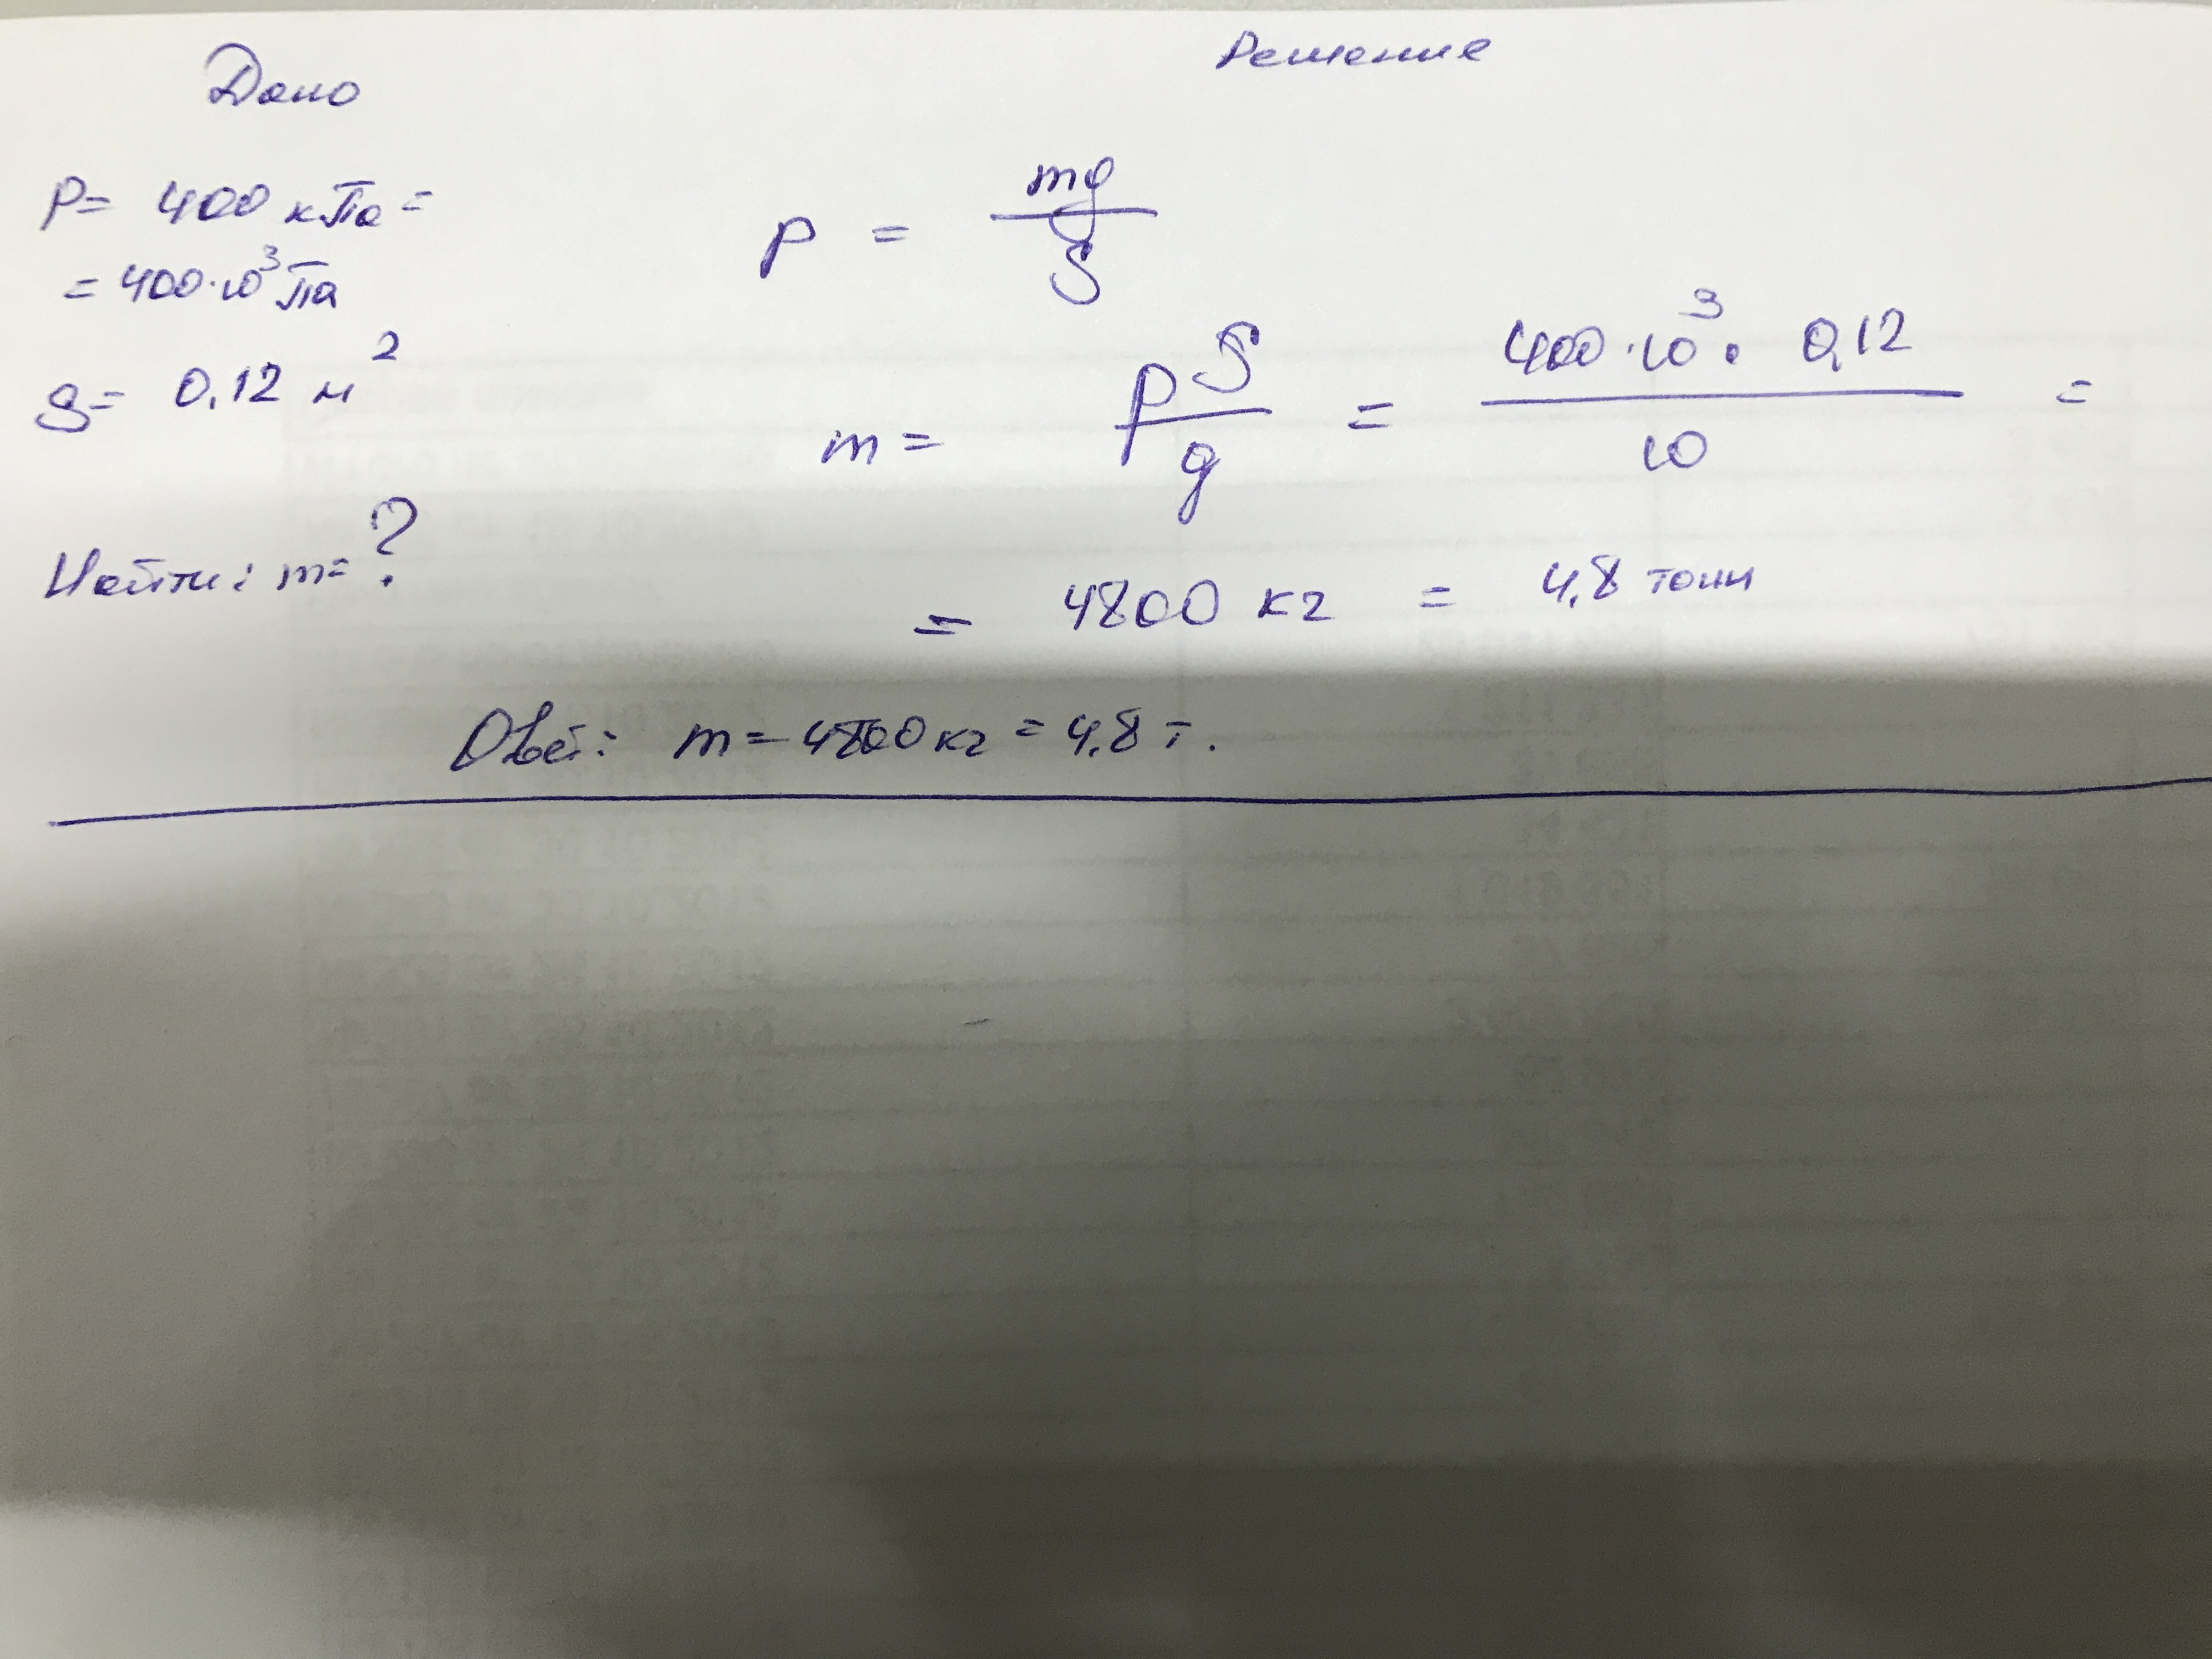 Дано
Решение
P= 400 кПа =
= 400·10³ Па
S= 0,12 м²
Найти: m= ?
p = mg / S
m = pS / g = 400·10³ · 0,12 / 10 =
= 4800 кг = 4,8 тонн
Ответ: m = 4800 кг = 4,8 т.